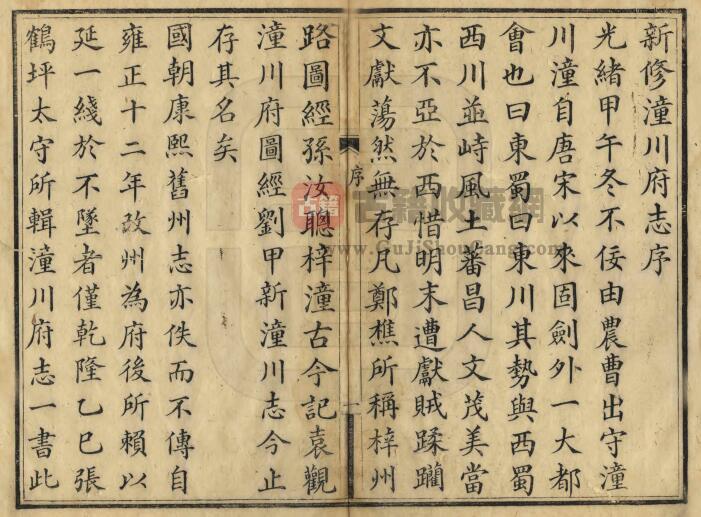 新修潼川府志序
光緒甲午冬不佞由農曹出守潼
川潼自唐宋以來固劍外一大都
會也曰東蜀曰東川其勢與西蜀
西川並峙風土蕃昌人文茂美當
亦不亞於西惜明末遭獻賊蹂躪
文獻蕩然無存凡鄭樵所稱梓州
序
一
路圖經孫汝聰梓潼古今記袁觀
潼川府圖經劉甲新潼川志今止
存其名矣
國朝康熙舊州志亦佚而不傳自
雍正十二年改州為府後所賴以
延一綫於不墜者僅乾隆乙巳張
鶴坪太守所輯潼川府志一書此
古籍
古籍收藏網
www.GuJiShouCang.com